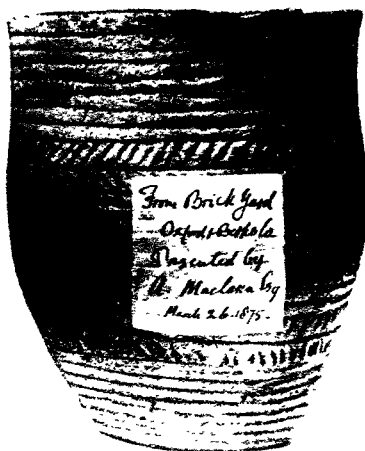 From Brick Yard
Oxford
Presented by
A. Maclean Esq
March 26. 1875.